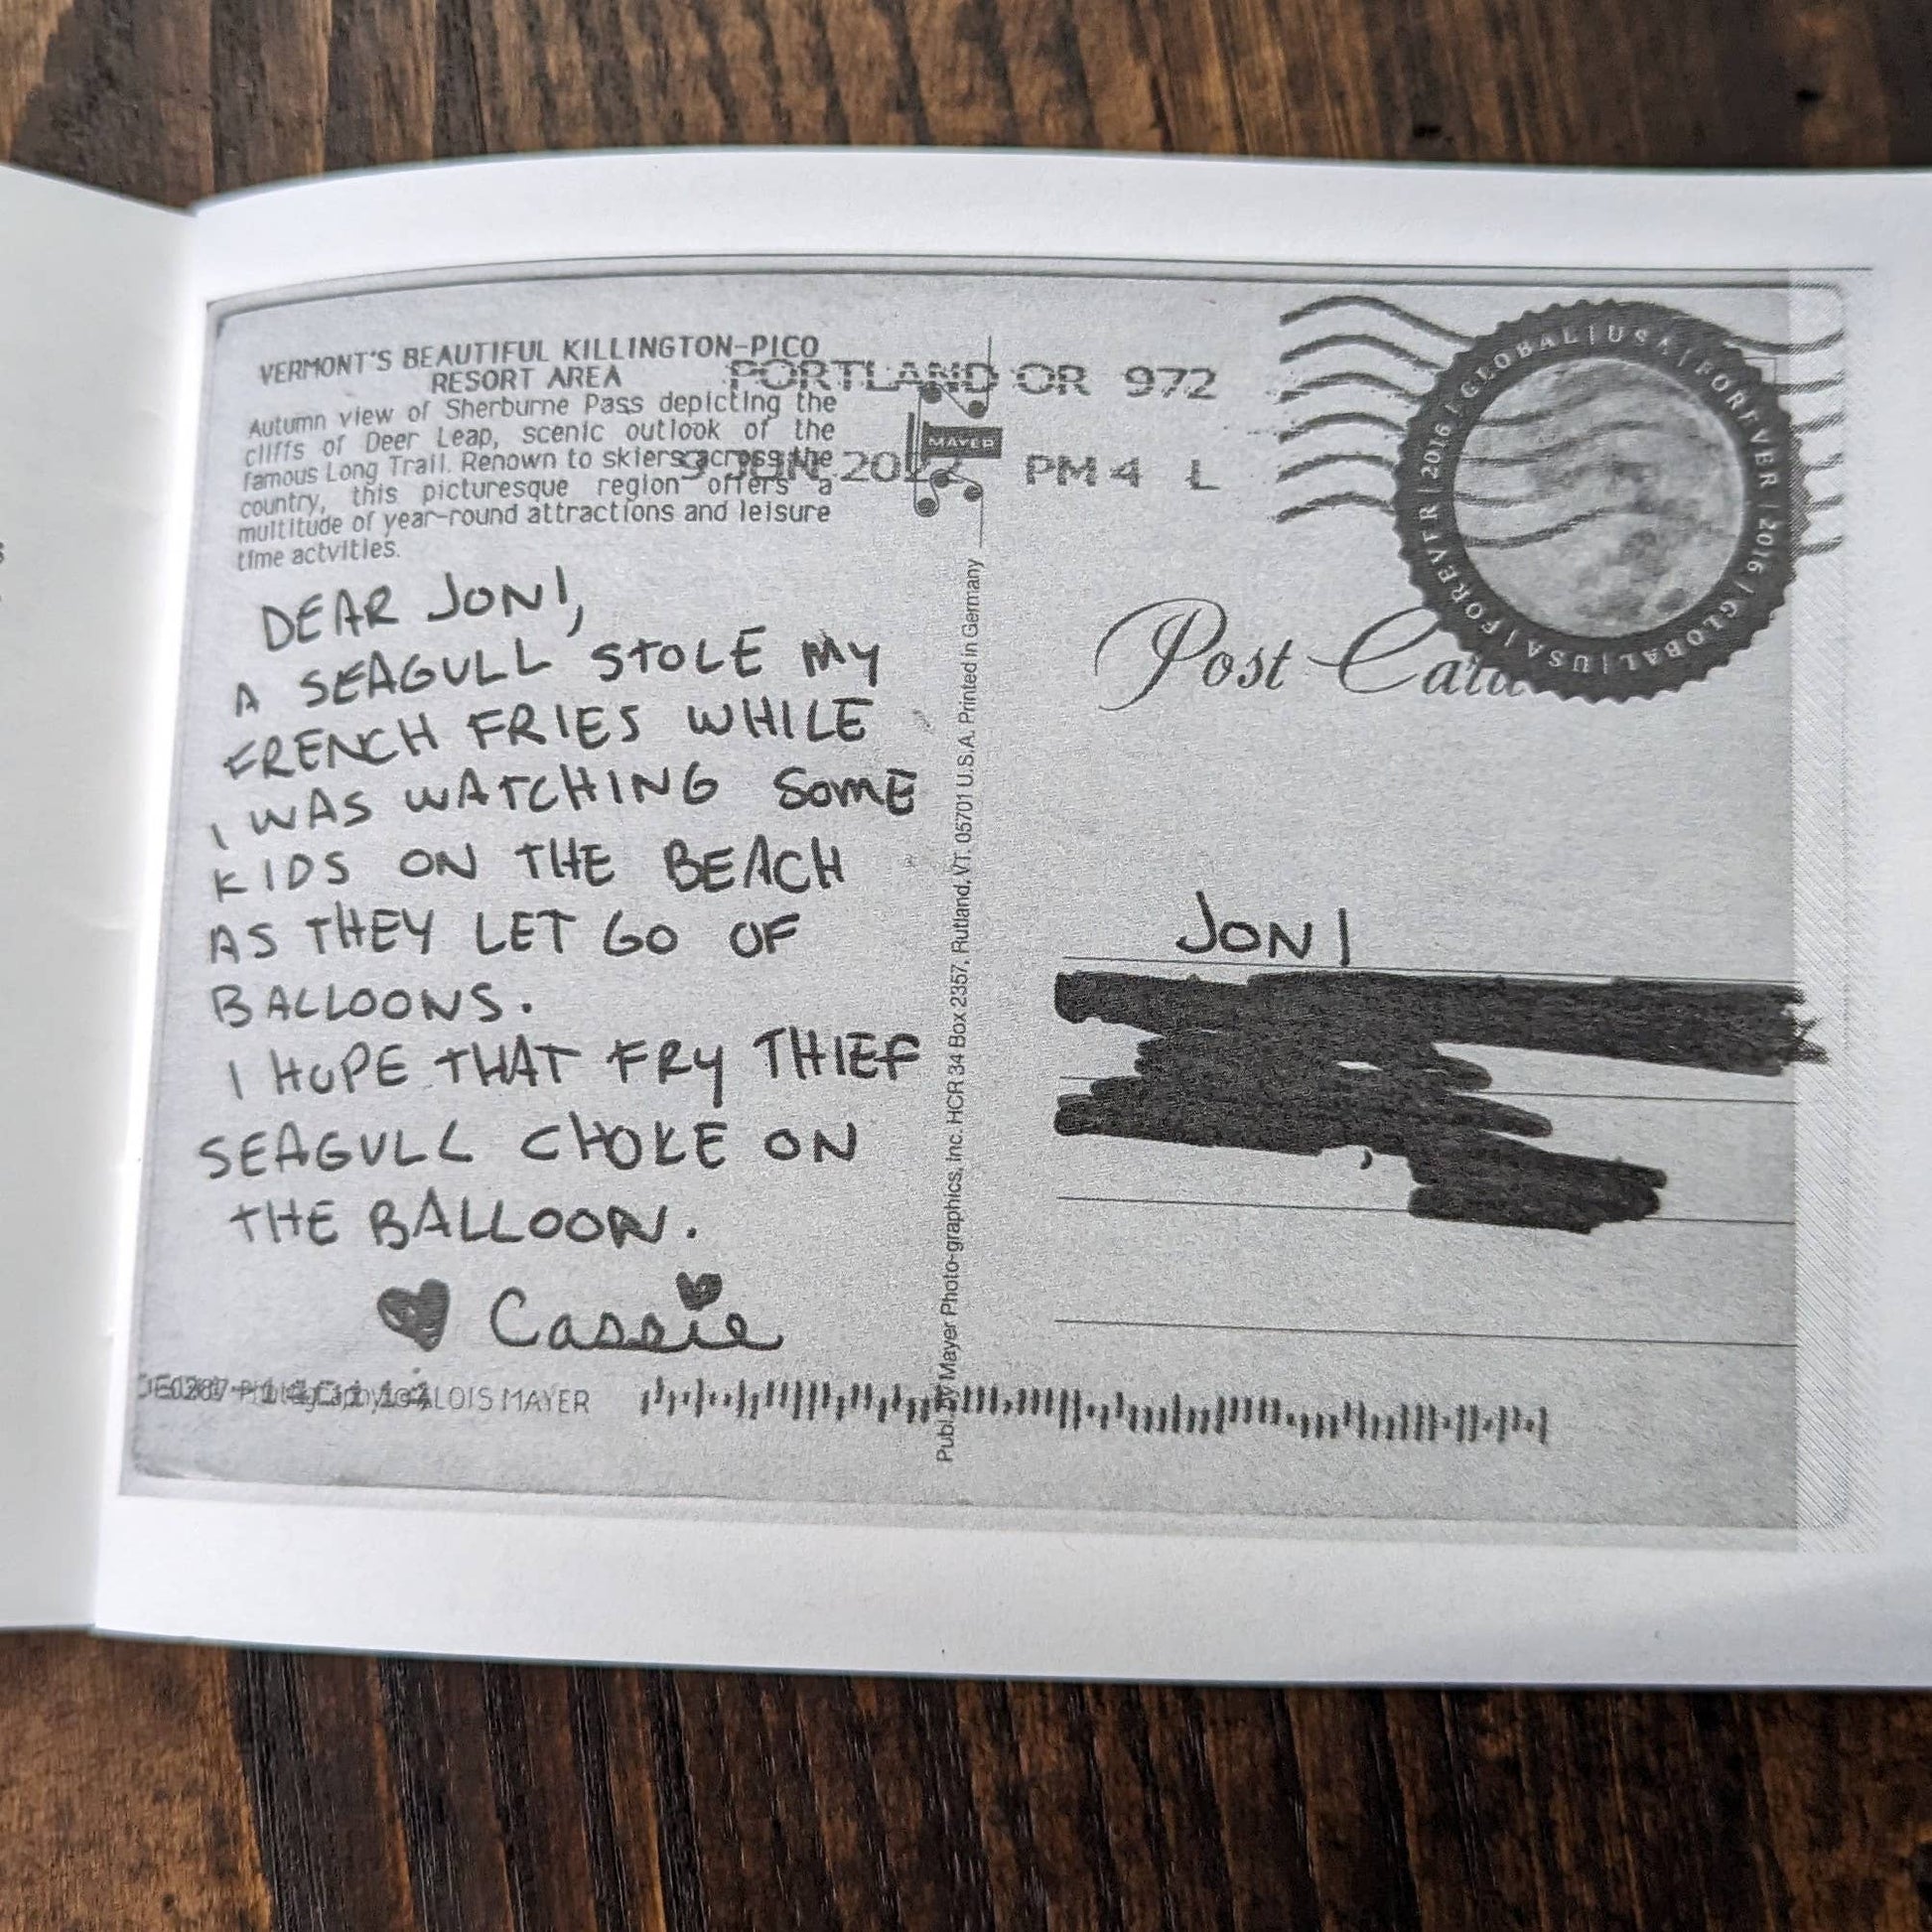 VERMONT'S BEAUTIFUL KILLINGTON-PICO
RESORT AREA
Autumn view of Sherburne Pass depicting the
cliffs of Deer Leap, scenic outlook of the
famous Long Trail. Renown to skiers across the
country, this picturesque region offers a
multitude of year-round attractions and leisure
time actvities.
PORTLAND OR 972
9 JUN 2022 PM 4 L
MAYER
GLOBAL | USA | FOREVER | 2016 | GLOBAL | USA | FOREVER | 2016 |
Post Card
DEAR JONI,
A SEAGULL STOLE MY
FRENCH FRIES WHILE
I WAS WATCHING SOME
KIDS ON THE BEACH
AS THEY LET GO OF
BALLOONS.
I HOPE THAT FRY THIEF
SEAGULL CHOKE ON
THE BALLOON.
♥ Cassie
JONI
Publ. by Mayer Photo-graphics, Inc. HCR 34 Box 2357, Rutland, VT. 05701 U.S.A. Printed in Germany
ALOIS MAYER